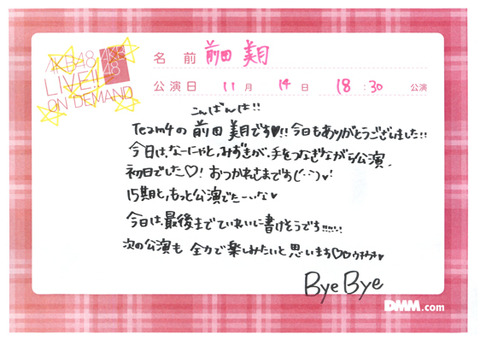 AKB48
LIVE!!
ON DEMAND
AKB
48
名 前 前田 美月
公演日 11 月 14 日 18 : 30 公演
こんばんは!!
Team4の 前田 美月です♥!! 今日もありがとうございました!!
今日は、なーにゃと、みずきが、手をつなぎながら公演
初日でした♡! おつかれさまです(˙-˙)♥!
15期と、もっと公演でたーいな♥
今日は、最後までていねいに書けそうです!!!!!
次の公演も 全力で楽しみたいと思います♡♡
Bye Bye
DMM.com